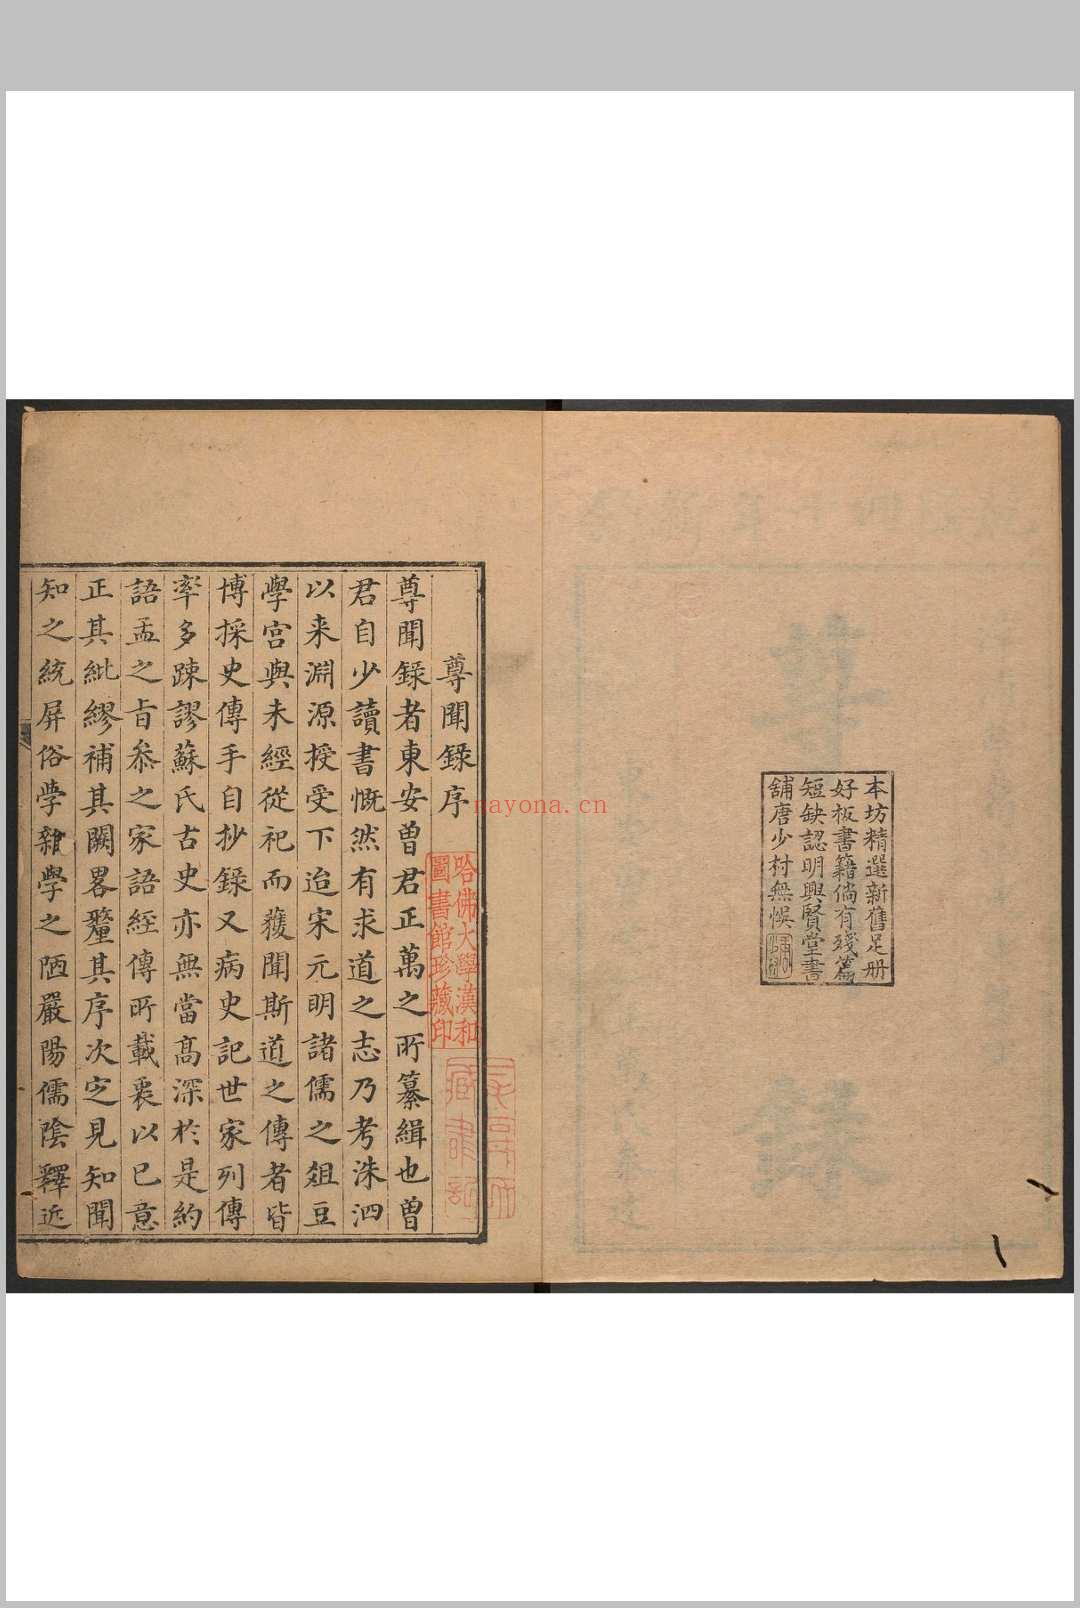 本坊精選新舊足册
好板書籍倘有殘篇
短缺認明興賢堂書
舖唐少村無悞
尊聞録序
尊聞録者東安曽君正萬之所纂緝也曽
君自少讀書慨然有求道之志乃考洙泗
以来淵源授受下迨宋元明諸儒之爼豆
學宫與未經從祀而蕕聞斯道之傳者皆
博採史傳手自抄録又病史記世家列傳
率多踈謬蘇氏古史亦無當髙深扵是約
語孟之旨叅之家語經傳所載衷以已意
正其紕繆補其闕畧釐其序次定見知聞
知之統屏俗學雜學之陋嚴陽儒陰釋近
哈佛大學漢和
圖書館珍藏印
nayona.cn